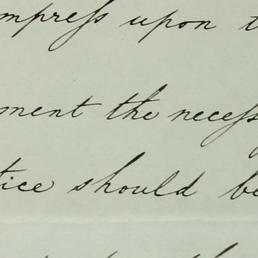 mpreſs upon t
ment the neceſs
tice should be